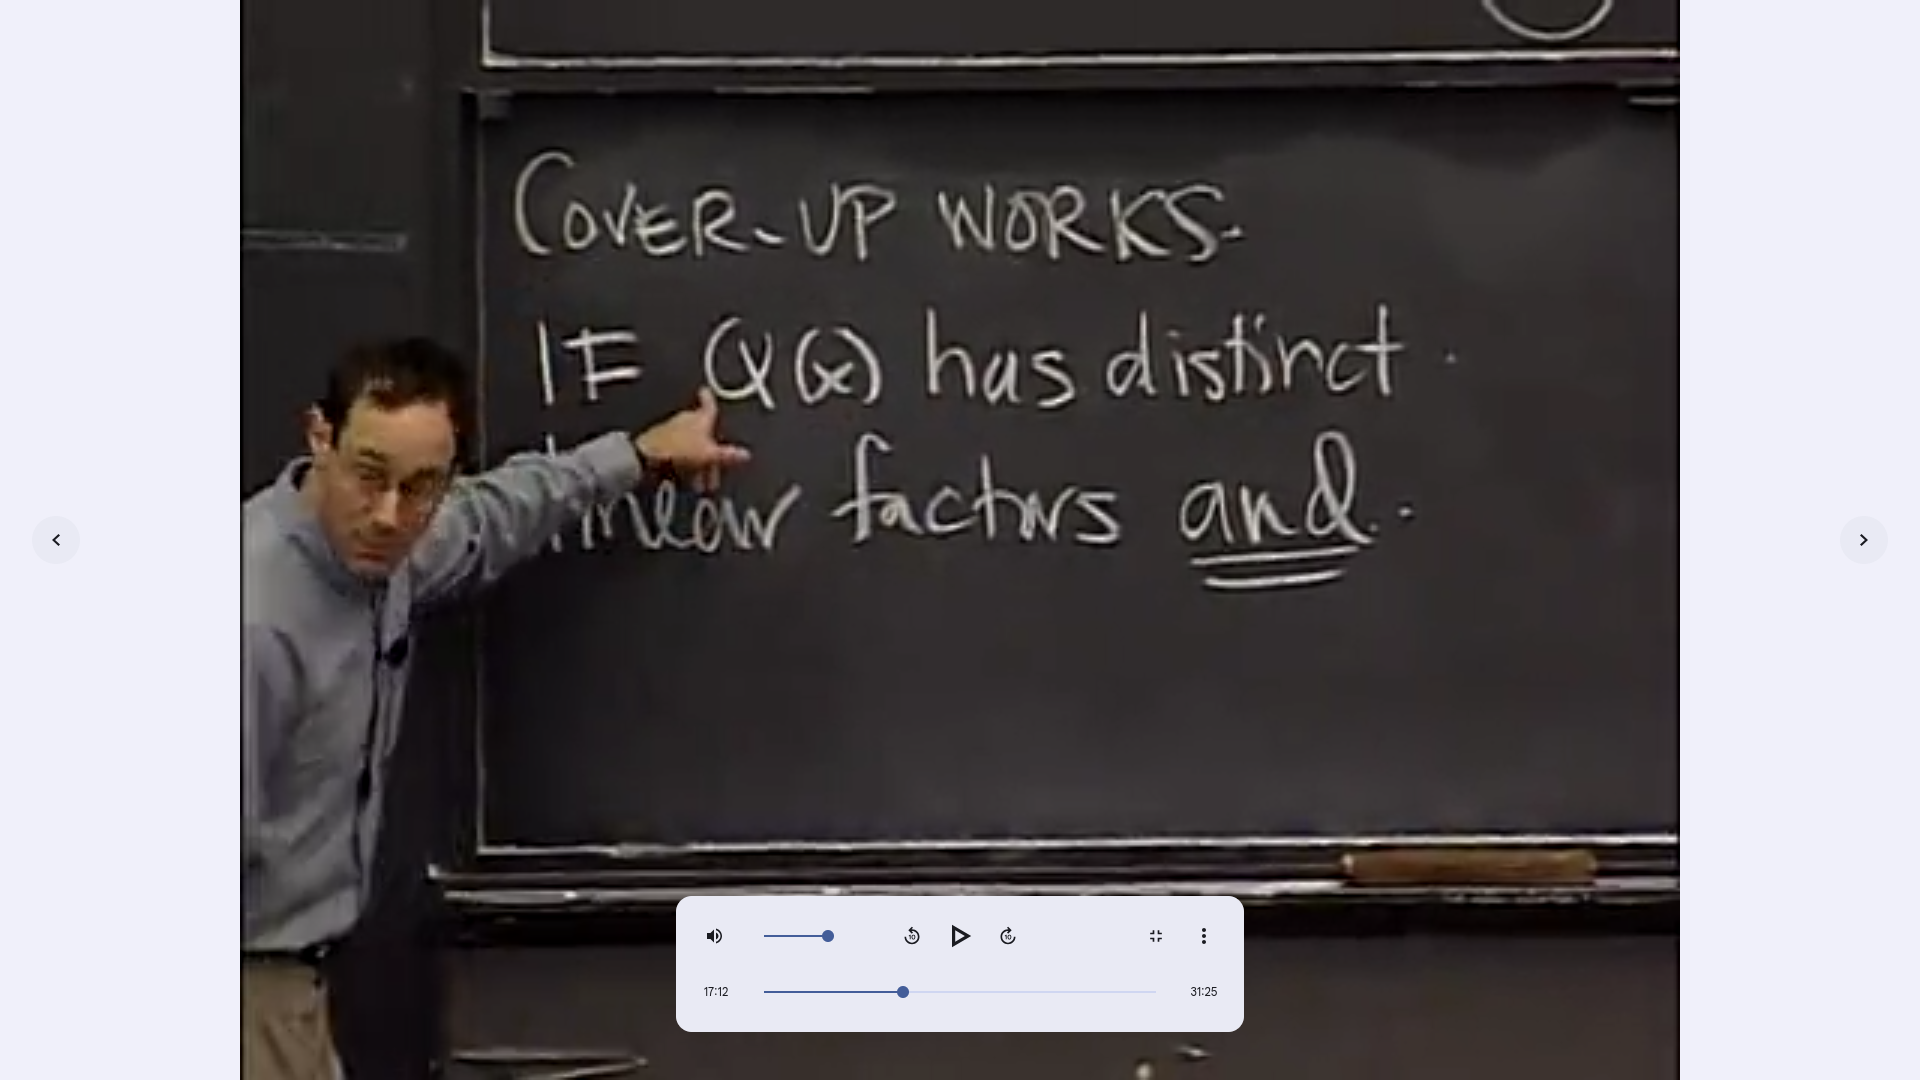 COVER-UP WORKS.
IF Q(x) has distinct
linear factors and
10
10
17:12
31:25